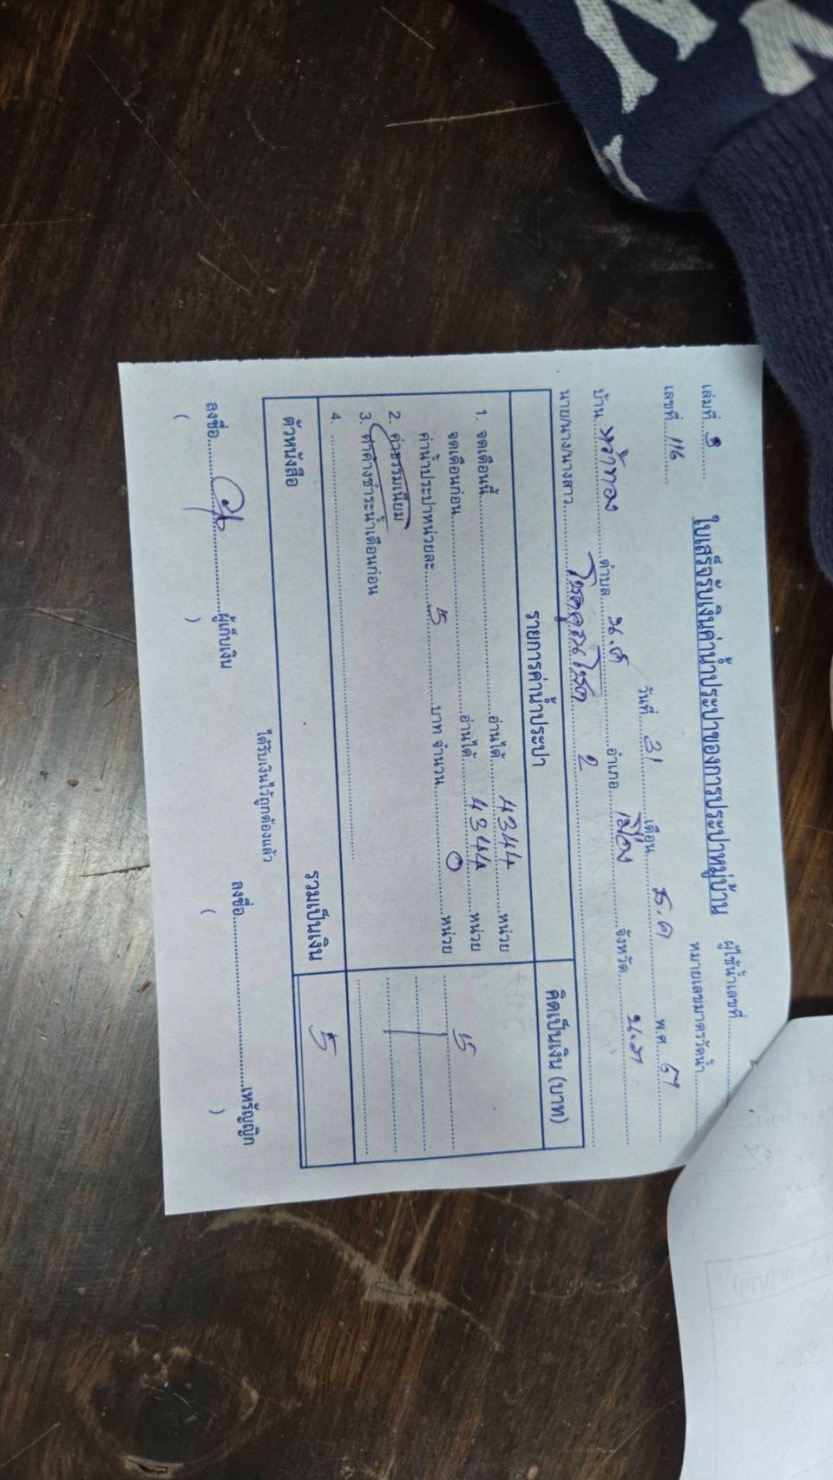 เล่มที่ 3
ใบเสร็จรับเงินค่าน้ำประปาของการประปาหมู่บ้าน
ผู้ใช้น้ำเลขที่
เลขที่ 116
หมายเลขมาตรวัดน้ำ
วันที่ 31 เดือน ธ.ค พ.ศ. 67
บ้าน ตำบล น.ต อำเภอ เมือง จังหวัด น.ภ
นาย/นาง/นางสาว 2
รายการค่าน้ำประปา คิดเป็นเงิน (บาท)
1. จดเดือนนี้ อ่านได้ 4344 หน่วย
จดเดือนก่อน อ่านได้ 4344 หน่วย
ค่าน้ำประปาหน่วยละ 5 บาท จำนวน 0 หน่วย 5
2. ค่าธรรมเนียม
3. ค่าค้างชำระน้ำเดือนก่อน
4.
ตัวหนังสือ รวมเป็นเงิน 5
ได้รับเงินไว้ถูกต้องแล้ว
ลงชื่อ ผู้เก็บเงิน ลงชื่อ เหรัญญิก
( ) ( )